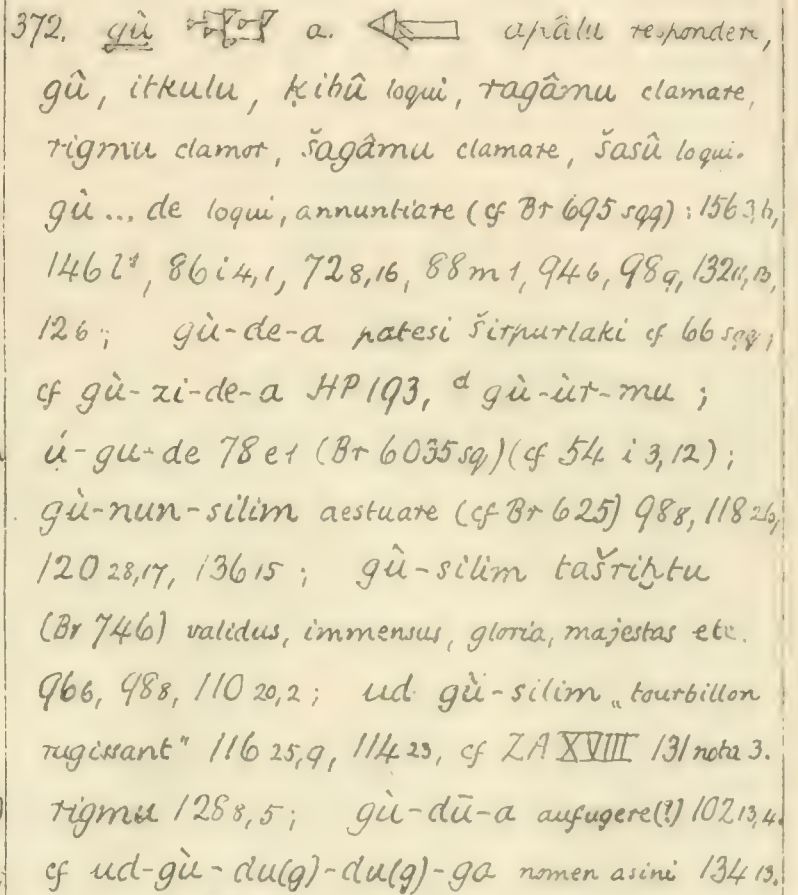 372. gù a. apâlu respondere,
gû, itkulu, ḳibû loqui, ragâmu clamare,
rigmu clamor, šagâmu clamare, šasû loqui.
gù ... de loqui, annuntiare (cf Br 695 sqq) : 156 3,6,
146 l¹, 86 i 4,1, 72 8,16, 88 m 1, 94 6, 98 9, 132 11,13,
12 6; gù-de-a patesi Širpurlaki cf 66 sqq;
cf gù-zi-de-a HP 193, ᵈ gù-ùr-mu ;
ú-gu-de 78 e 1 (Br 6035 sq) (cf 54 i 3,12) ;
gù-nun-silim aestuare (cf Br 625) 98 8, 118 26,
120 28,17, 136 15 ; gù-silim tašriḫtu
(Br 746) validus, immensus, gloria, majestas etc.
96 6, 98 8, 110 20,2 ; ud gù-silim „tourbillon
rugissant" 116 25,9, 114 23, cf ZA XVIII 131 nota 3.
rigmu 128 8,5 ; gù-dū-a aufugere(?) 102 13,4.
cf ud-gù-du(g)-du(g)-ga nomen asini 134 13.